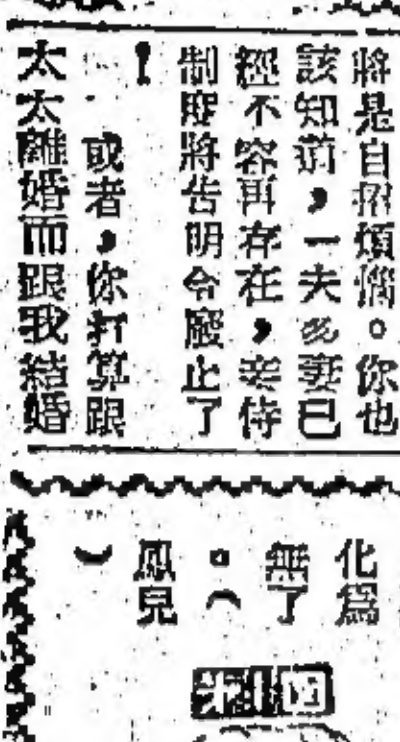 將是自招煩惱。你也
該知道，一夫多妻已
經不容再存在，妾侍
制度將告明令廢止了
！
或者，你打算跟
太太離婚而跟我結婚
化為
無了
。（
鳳兒
）